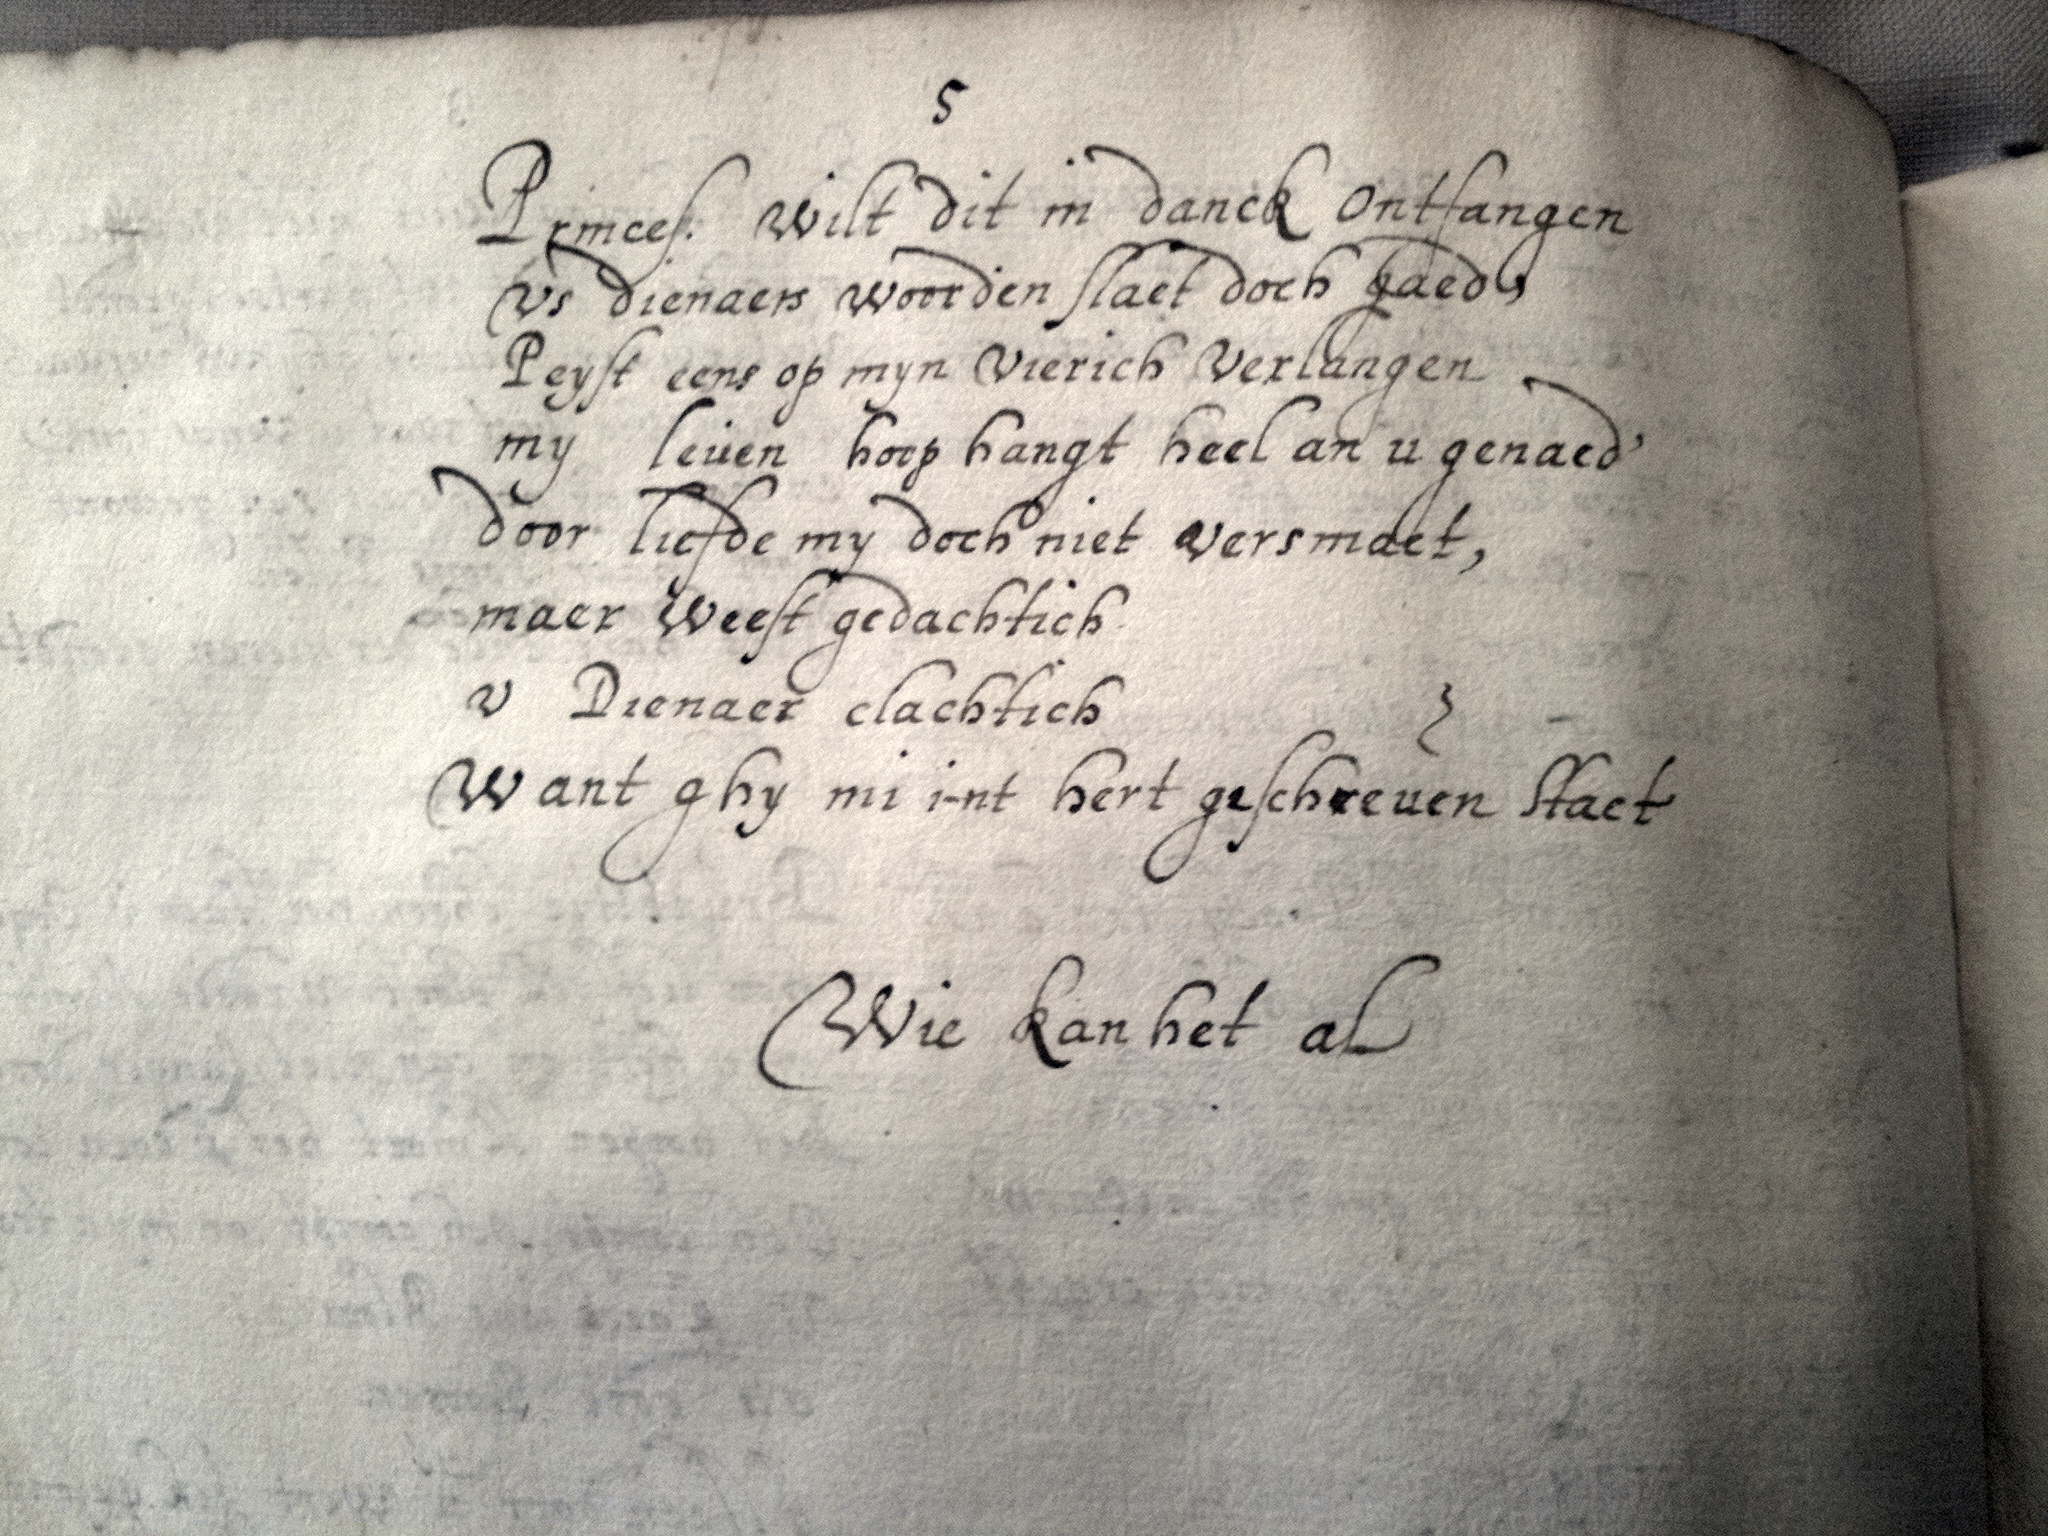 5
Princes. wilt dit in danck ontfangen
vs dienaers woorden slaet doch gaed,
Peyst eens op myn vierich verlangen
my leuen hoop hangt heel an u genaed'
door liefde my doch niet versmaet,
maer weest gedachtich
v Dienaer clachtich
Want ghy mi i-nt hert geschreuen staet
Wie kan het al